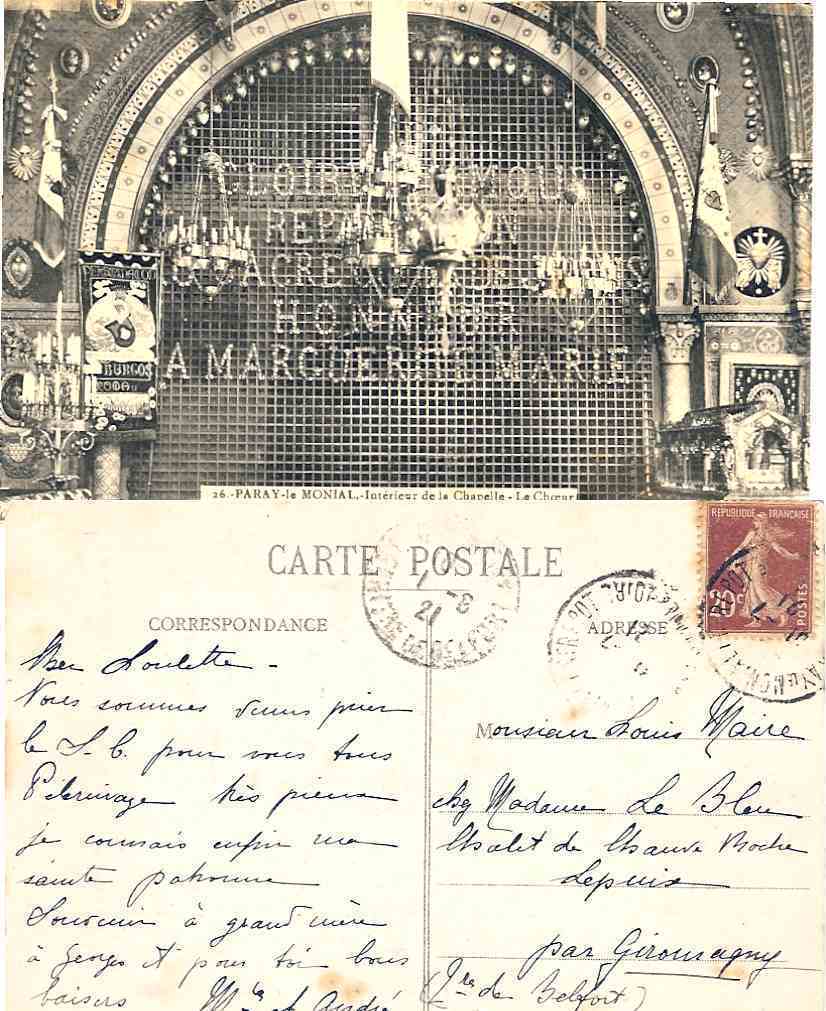 GLOIRE AMOUR
REPARATION
HONNEUR
A MARGUERITE MARIE
BURGOS
ROMA
26.-PARAY-le MONIAL.-Intérieur de la Chapelle - Le Chœur
CARTE POSTALE
REPUBLIQUE FRANÇAISE
20c
POSTES
CORRESPONDANCE
ADRESSE
Mon Loulette -
Nous sommes venus prier
le S. C. pour vous tous
Pélerinage très pieux
je connais enfin ma
sainte patronne
Souvenir à grand'mère
à Georges et pour toi bons
baisers M. et André
Monsieur Louis Maire
chez Madame Le Bleu
Chalet de Chauve Roche
Lepuix
par Giromagny
(Tre de Belfort)